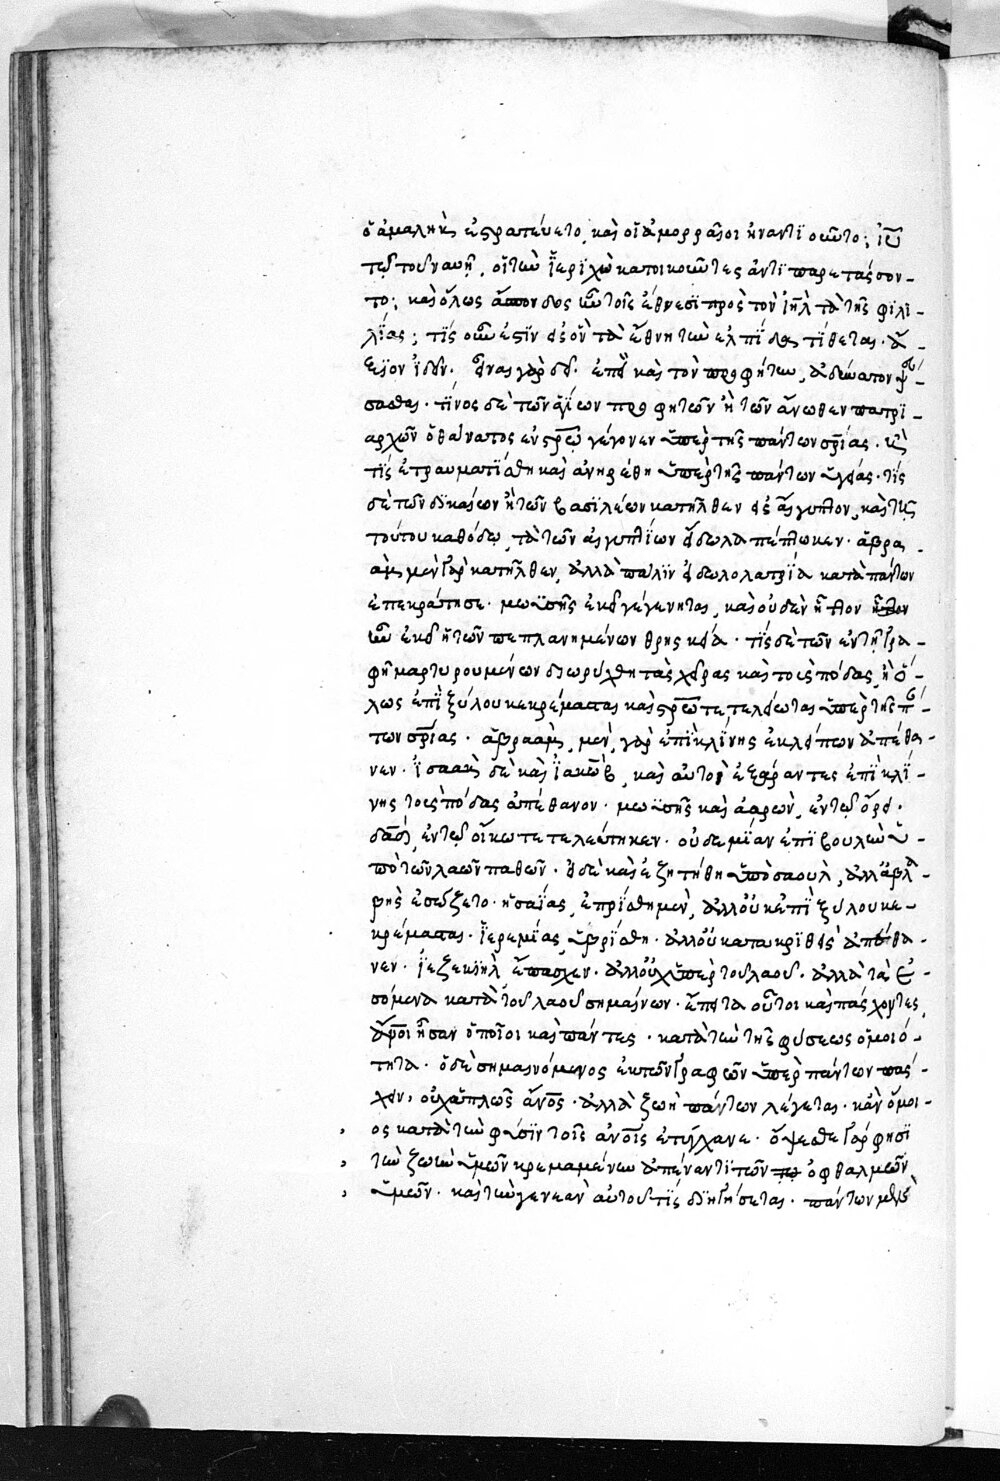 ὁ ἀμαλὴκ ἐστρατεύετο, καὶ οἱ ἀμορραῖοι ἠναντϊοῦντο; ἰῦ
τοῦ τοῦ ναυῆ, οἱ τὴν ἱερϊχὼ κατοικοῦντες ἀντϊπαρετάσσον-
το; καὶ ὅλως ἄσπονδος ἦν τοῖς ἔθνεσϊ πρὸς τὸν ἰηλ τὰ τῆς φϊλϊ-
λίας; τίς οὖν ἐστϊν εἰς ὃν τὰ ἔθνη τὴν ἐλπίδα τίθεται. ἄ-
ξϊον ἰδεῖν. εἶναι γὰρ δεῖ. ἐπεὶ καὶ τὸν προφήτην, ἀδύνατον ψεύ-
σασθαι. τίνος δὲ τῶν ἁγίων προφητῶν ἢ τῶν ἄνωθεν πατρϊ-
αρχῶν ὁ θάνατος ἐν στρῶ γέγονεν ὑπὲρ τῆς πάντων σρίας. ἢ
τίς ἐτραυματίσθη καὶ ἀνηρέθη ὑπὲρ τῆς πάντων ὑγείας. τίς
δὲ τῶν δϊκαίων ἢ τῶν βασϊλέων κατῆλθεν εἰς αἴγυπτον, καὶ τῆ
τούτου καθόδω, τὰ τῶν αἰγυπτίων εἴδωλα πέπτωκεν. ἀβρα-
ὰμ μὲν γὰρ κατῆλθεν, ἀλλὰ πάλϊν εἰδωλολατρϊα κατὰ πάντων
ἐπεκράτησε. μωϋσῆς ἐκεῖ γεγένηται, καὶ οὐδὲν ἧττον ἧττον
ἦν ἐκεῖ ἡ τῶν πεπλανημένων θρησκεία. τίς δὲ τῶν ἐν τῆ γρα-
φῆ μαρτυρουμένων διωρύχθη τὰς χεῖρας καὶ τοὺς πόδας, ἢ ὅ-
λως ἐπὶ ξύλου κεκρέμασται καὶ στρῶ τετελείωται ὑπὲρ τῆς πάν-
των σρίας. ἀβραὰμ, μὲν, γὰρ ἐπὶ κλίνης ἐκλείπων ἀπέθα-
νεν. ἰσαὰκ δὲ καὶ ἰακὼβ, καὶ αὐτοὶ ἐξάραντες ἐπὶ κλί-
νης τοὺς πόδας ἀπέθανον. μωϋσῆς καὶ ἀαρὼν, ἐν τῶ ὄρει.
δαδ, ἐν τῶ οἴκω τετελεύτηκεν. οὐδεμίαν ἐπϊβουλὴν ὑ-
πὸ τῶν λαῶν παθῶν. εἰ δὲ καὶ ἐζητήθη ὑπὸ σαοὺλ, ἀλλ' ἀβλα-
βὴς ἐσώζετο. ἡσαΐας, ἐπρίσθη μὲν, ἀλλ' οὐκ ἐπὶ ξύλου κε-
κρέμασται. ἱερεμίας, ὑβρίσθη. ἀλλ' οὐ κατακρϊθεὶς ἀπέθα-
νεν. ἰεζεκϊὴλ ἔπασχεν. ἀλλ' οὐχ ὑπὲρ τοῦ λαοῦ. ἀλλὰ τὰ ἐ-
σόμενα κατὰ τοῦ λαοῦ σημαίνων. ἔπειτα οὗτοι καὶ πάσχοντες,
ἄνοι ἦσαν ὁποῖοι καὶ πάντες. κατὰ τὴν τῆς φύσεως ὁμοιό-
τητα. ὁ δὲ σημαινόμενος ἐκ τῶν γραφῶν ὑπὲρ πάντων πάσ-
χειν, οὐχ ἁπλῶς ἄνος. ἀλλὰ ζωὴ πάντων λέγεται. κἂν ὅμοι-
ος κατὰ τὴν φύσϊν τοῖς ἀνοῖς ἐτύγχανε. ὄψεσθε γάρ φησϊ
τὴν ζωὴν ὑμῶν κρεμαμένην ἀπέναντϊ τῶν το ὀφθαλμῶν
ὑμῶν. καὶ τὴν γενεὰν αὐτοῦ τίς δϊηγήσεται. πάντων μὲν